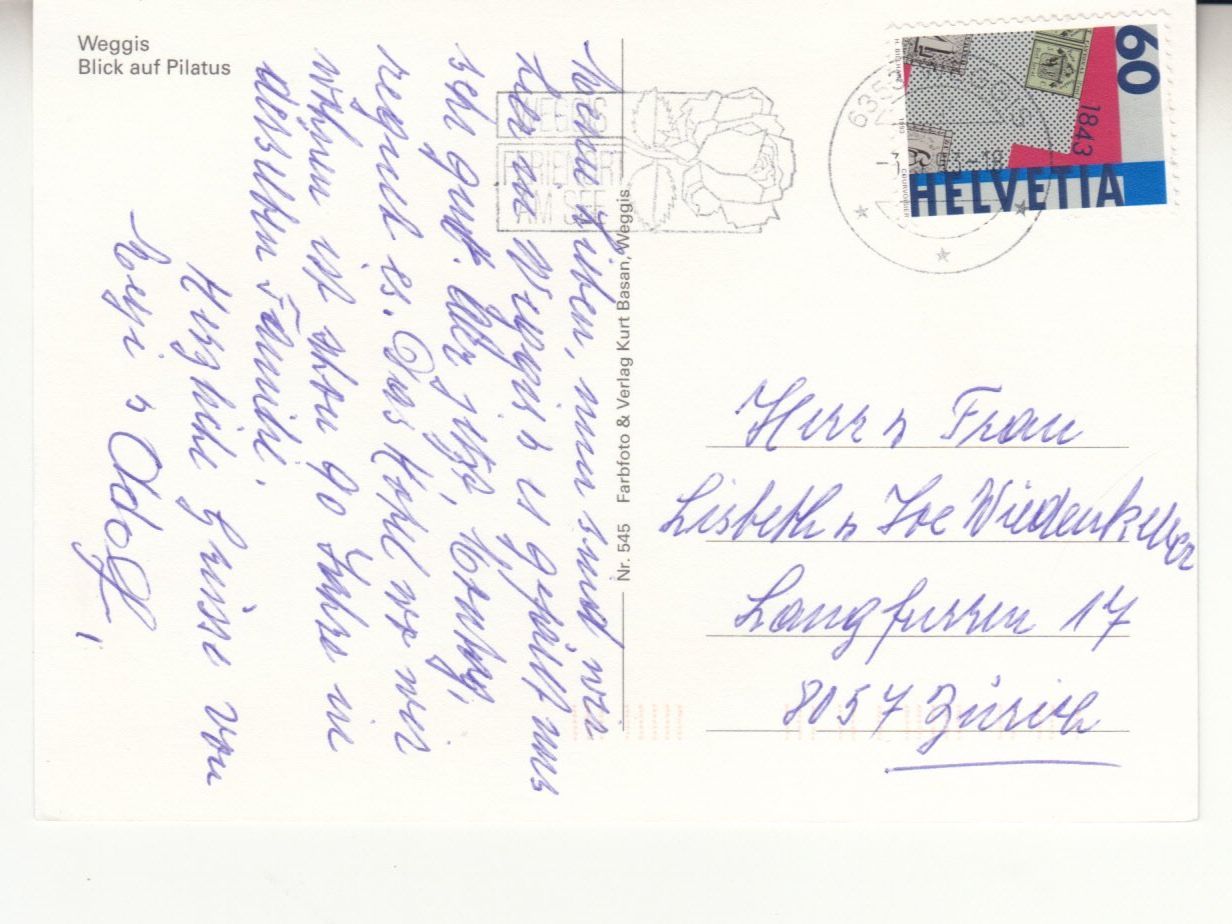 Weggis
Blick auf Pilatus
Meine Lieben, nun sind wir
hier in Weggis u es gefällt uns
sehr gut. Aber jetzt, Montag,
regnet es. Das Hotel wo wir
wohnen ist schon 90 Jahre in
derselben Familie.
Herzliche Grüsse von
Rösi u Adolf
Nr. 545 Farbfoto & Verlag Kurt Basan, Weggis
WEGGIS
FERIENORT
AM SEE
6353
60
1843
HELVETIA
H. BÜCHLER
1993
COURVOISIER
Herr u Frau
Lisbeth u Joe Wiedenkeller
Langfurren 17
8057 Zürich